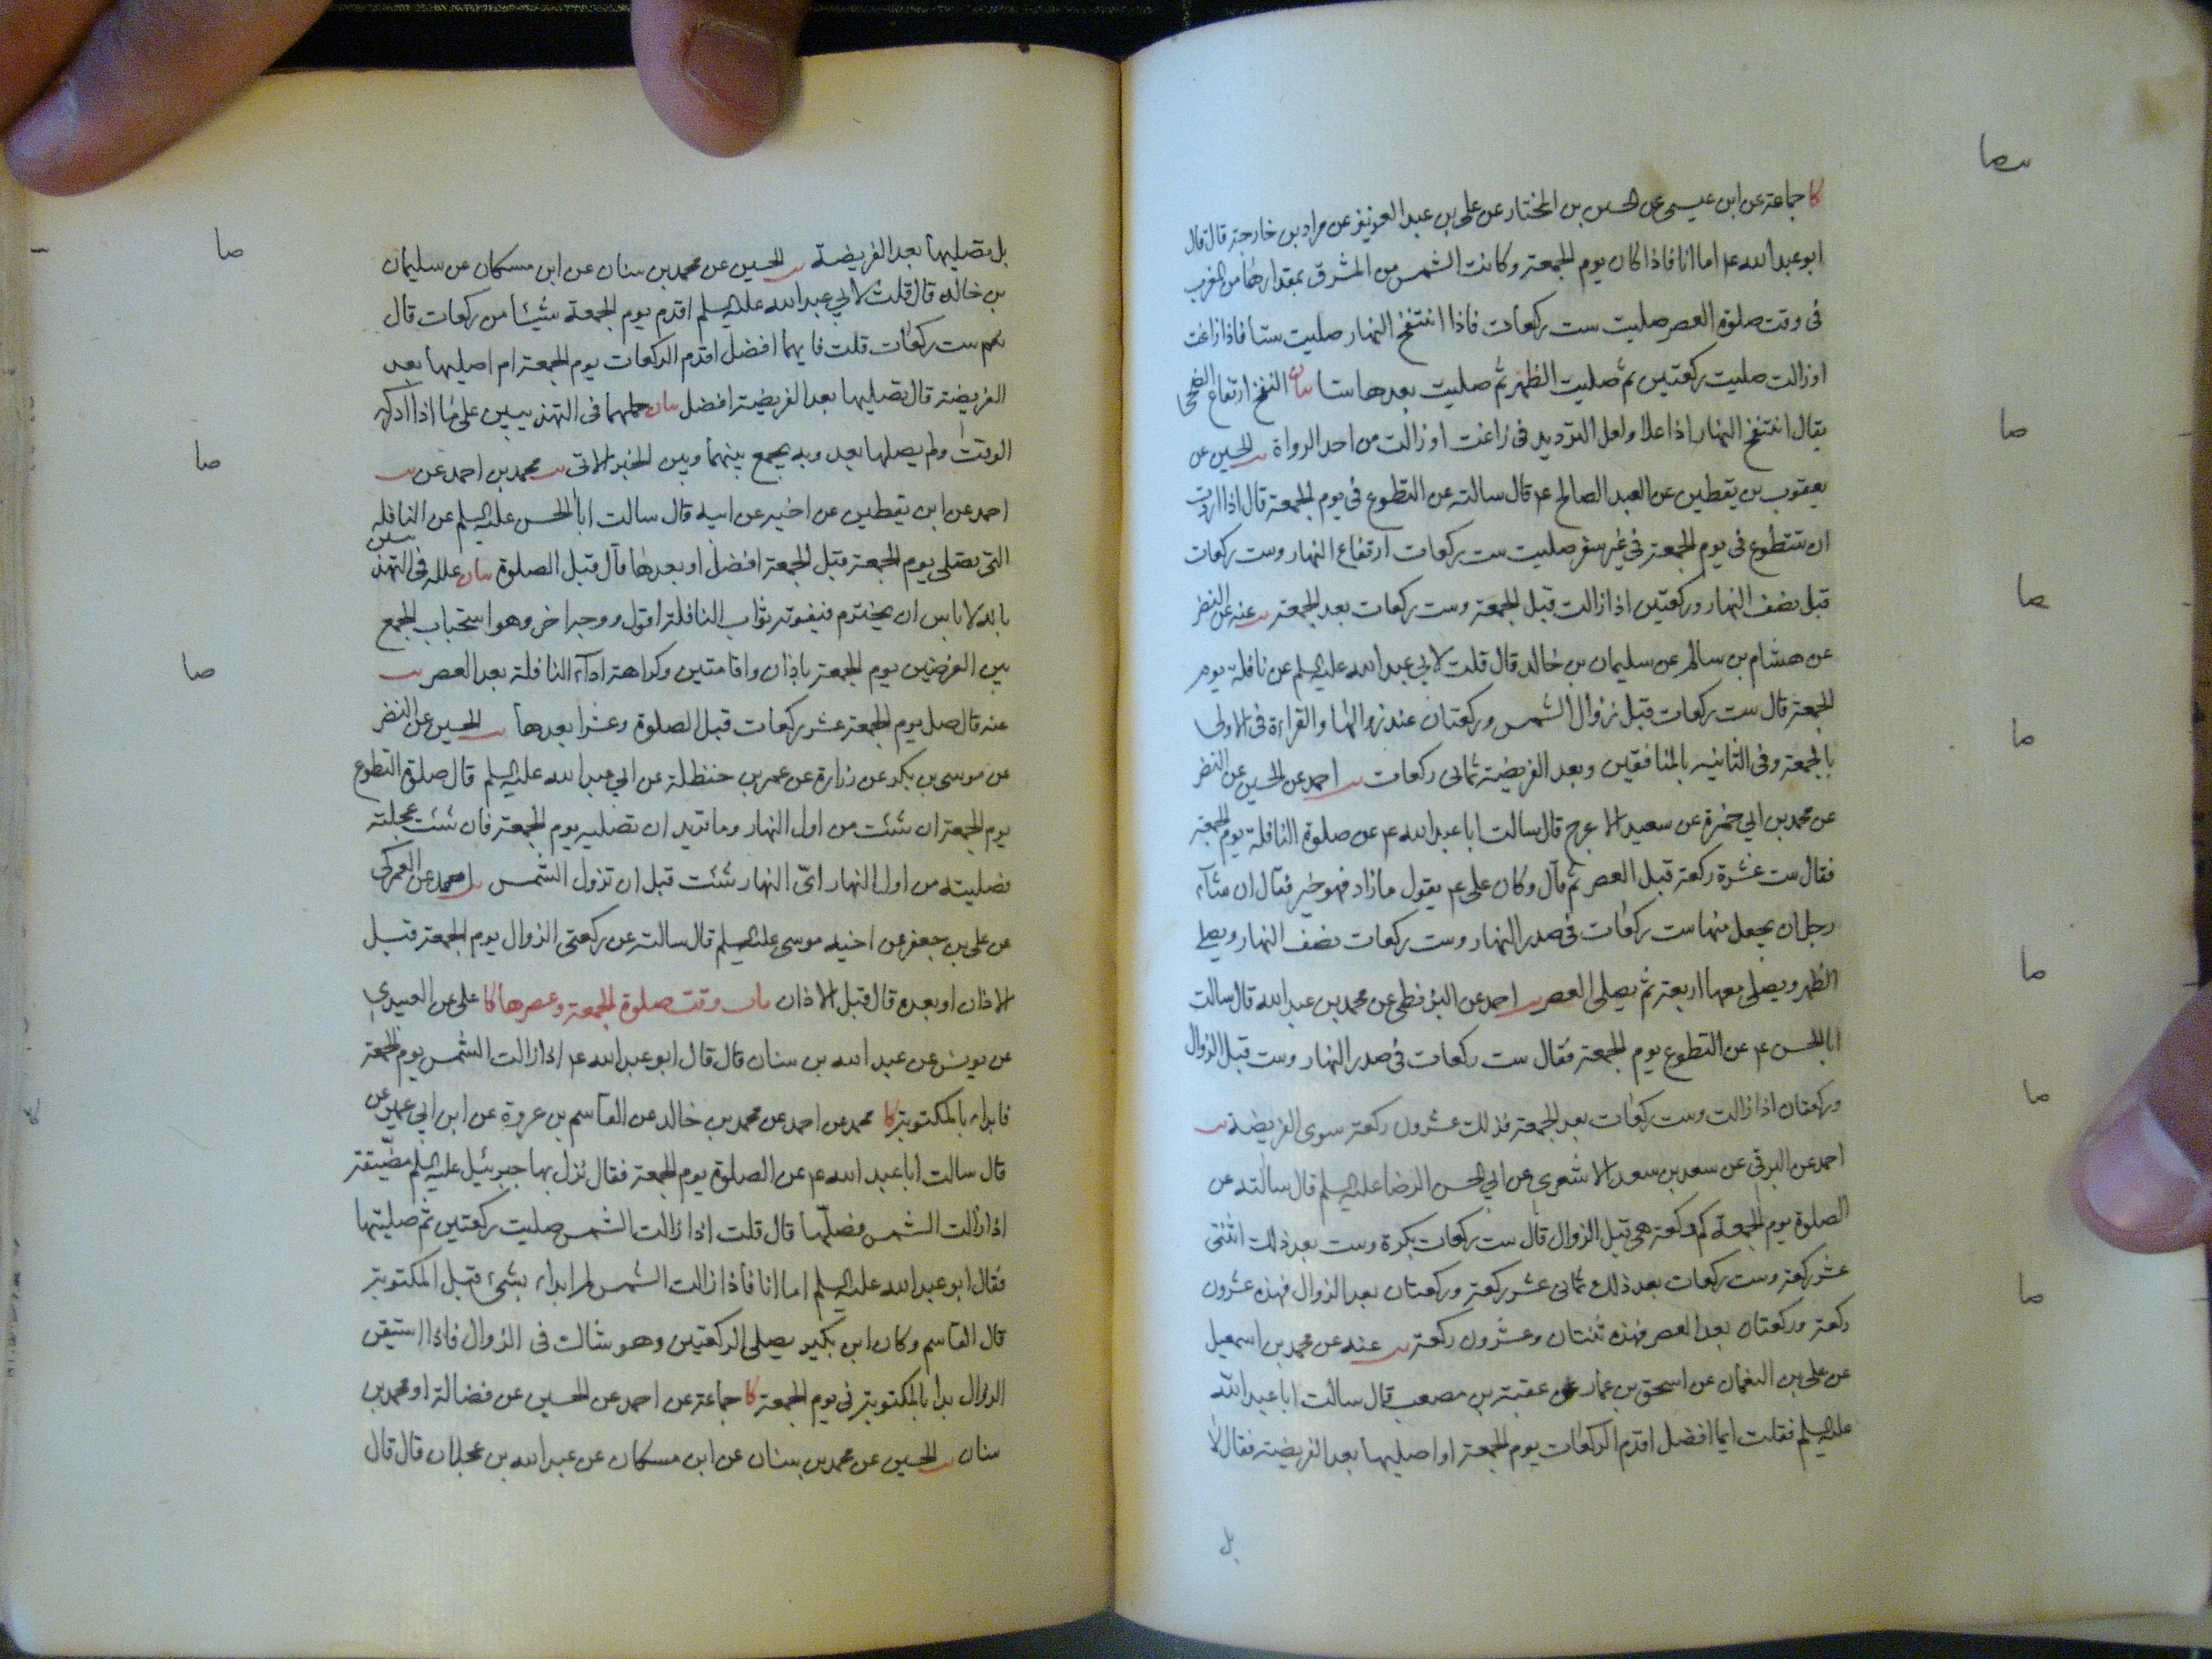 كا جماعة عن ابن عيسى عن الحسين بن المختار عن علي بن عبد العزيز عن مراد بن خارجة قال قال
ابو عبد الله عم اما انا فاذا كان يوم الجمعة وكانت الشمس من المشرق بمقدارها من المغرب
فى وقت صلوة العصر صليت ست ركعات فاذا انتفخ النهار صليت ستا فاذا زاغت
او زالت صليت ركعتين ثم صليت الظهر ثم صليت بعدها ستا بيان النفخ ارتفاع الضحى
يقال انتفخ النهار اذا علا ولعل الترديد فى زاغت او زالت من احد الرواة يب الحسين عن
يعقوب بن يقطين عن العبد الصالح عم قال سالته عن التطوع فى يوم الجمعة قال اذا اردت
ان تتطوع فى يوم الجمعة فى غير سفر صليت ست ركعات ارتفاع النهار وست ركعات
قبل نصف النهار وركعتين اذا زالت قبل الجمعة وست ركعات بعد الجمعة يب عنه عن النضر
عن هشام بن سالم عن سليمان بن خالد قال قلت لابي عبد الله عليه السلم عن نافلة يوم
الجمعة قال ست ركعات قبل زوال الشمس وركعتان عند زوالها والقراءة فى الاولى
بالجمعة وفى الثانيه بالمنافقين وبعد الفريضة ثمانى ركعات يب احمد عن الحسين عن النضر
عن محمد بن ابي حمزة عن سعيد الاعرج قال سالت ابا عبد الله عم عن صلوة النافلة يوم الجمعة
فقال ست عشرة ركعة قبل العصر ثم قال وكان على عم يقول ما زاد فهو خير فقال ان شآء
رجل ان يجعل منها ست ركعات فى صدر النهار وست ركعات نصف النهار ويصلى
الظهر ويصلى معها اربعة ثم يصلى العصر يب احمد عن البزنطى عن محمد بن عبد الله قال سالت
ابا الحسن عم عن التطوع يوم الجمعة فقال ست ركعات فى صدر النهار وست قبل الزوال
وركعتان اذا زالت وست ركعات بعد الجمعة فذلك عشرون ركعة سوى الفريضة يب
احمد عن البرقى عن سعد بن سعد الاشعرى عن ابي الحسن الرضا عليه السلم قال سالته عن
الصلوة يوم الجمعة كم ركعة هى قبل الزوال قال ست ركعات بكرة وست بعد ذلك اثنتى
عشر ركعة وست ركعات بعد ذلك ثمانى عشر ركعة وركعتان بعد الزوال فهذه عشرون
ركعة وركعتان بعد العصر فهذه ثنتان وعشرون ركعة يب عنه عن محمد بن اسمعيل
عن على بن النعمان عن اسحق بن عمار عن عقبة بن مصعب قال سالت ابا عبد الله
عليه السلم فقلت ايما افضل اقدم الركعات يوم الجمعة او اصليها بعد الفريضة فقال لا
بل
بل تصليها بعد الفريضة يب الحسين عن محمد بن سنان عن ابن مسكان عن سليمان
بن خالد قال قلت لابي عبد الله عليه السلم اقدم يوم الجمعة شيئا من ركعات قال
نعم ست ركعات قلت فايهما افضل اقدم الركعات يوم الجمعة ام اصليها بعد
الفريضة قال تصليها بعد الفريضة افضل بيان حملهما فى التهذيبين على ما اذا ادركه
الوقت ولم يصلها بعد وبه يجمع بينهما وبين الخبر الاتى يب محمد بن احمد عن يب
احمد عن ابن يقطين عن اخيه عن ابيه قال سالت ابا الحسن عليه السلم عن النافلة
التى تصلى يوم الجمعة قبل الجمعة افضل او بعدها قال قبل الصلوة بيان علله فى التهذيبين
بانه لا يامن ان يخترم فيفوته ثواب النافلة اقول ووجه اخر وهو استحباب الجمع
بين الفرضين يوم الجمعة باذان واقامتين وكراهة ادآء النافلة بعد العصر يب
عنه قال صل يوم الجمعة عشر ركعات قبل الصلوة وعشرا بعدها يب الحسين عن النضر
عن موسى بن بكر عن زرارة عن عمر بن حنظلة عن ابي عبد الله عليه السلم قال صلوة التطوع
يوم الجمعة ان شئت من اول النهار وما تريد ان تصليه يوم الجمعة فان شئت عجلته
فصليته من اول النهار اىّ النهار شئت قبل ان تزول الشمس يب محمد عن العمركى
عن على بن جعفر عن اخيه موسى عليه السلم قال سالته عن ركعتى الزوال يوم الجمعة قبل
الاذان او بعده قال قبل الاذان باب وقت صلوة الجمعة وعصرها كا على عن العبيدى
عن يونس عن عبد الله بن سنان قال قال ابو عبد الله عم اذا زالت الشمس يوم الجمعة
فابدا بالمكتوبة كا محمد عن احمد عن محمد بن خالد عن القاسم بن عروة عن ابن ابي عمير عن
قال سالت ابا عبد الله عم عن الصلوة يوم الجمعة فقال نزل بها جبرئيل عليه السلم مضيّقة
اذا زالت الشمس فصلّها قال قلت اذا زالت الشمس صليت ركعتين ثم صليتها
فقال ابو عبد الله عليه السلم اما انا فاذا زالت الشمس لم ابدا بشىء قبل المكتوبة
قال القاسم وكان ابن بكير يصلى الركعتين وهو شاك فى الزوال فاذا استيقن
الزوال بدا بالمكتوبة فى يوم الجمعة كا جماعة عن احمد عن الحسين عن فضالة او محمد بن
سنان يب الحسين عن محمد بن سنان عن ابن مسكان عن عبد الله بن عجلان قال قال